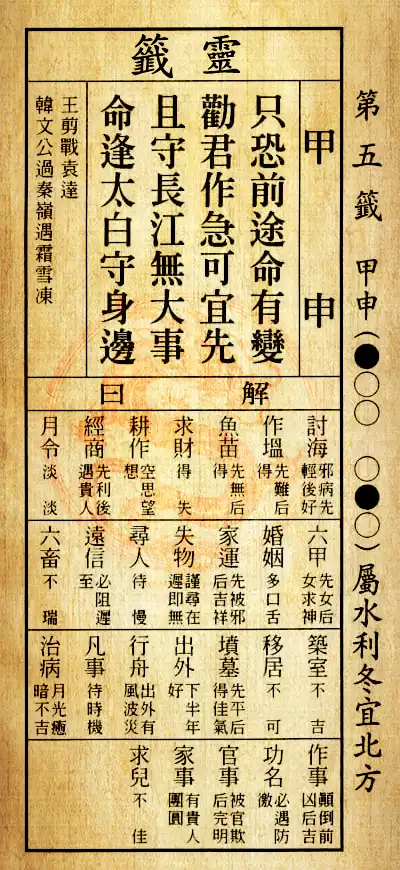 第五籤 甲申(●○○ ○●○)屬水利冬宜北方
靈籤
甲申
只恐前途命有變
勸君作急可宜先
且守長江無大事
命逢太白守身邊
王剪戰袁達
韓文公過秦嶺遇霜雪凍
解曰
討海 邪病先輕後好
作塭 先難后得
魚苗 先無后得
求財 得失
耕作 空思望想
經商 先利後遇貴人
月令 淡淡
六甲 先女后女求神
婚姻 多口舌
家運 先被邪后吉祥
失物 謹尋在遲即無
尋人 待慢
遠信 必阻遲至
六畜 不瑞
築室 不吉
移居 不可
墳墓 先平后得佳氣
出外 下半年好
行舟 出外有風波災
凡事 待時機
治病 月光癒暗不吉
作事 顛倒前凶后吉
功名 必遇防徼
官事 被官欺后完明
家事 有貴人團圓
求兒 不佳